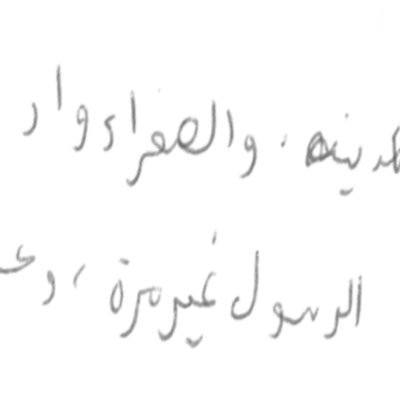 مدينه . والصفراء واد
الرسول غير مرة ، و